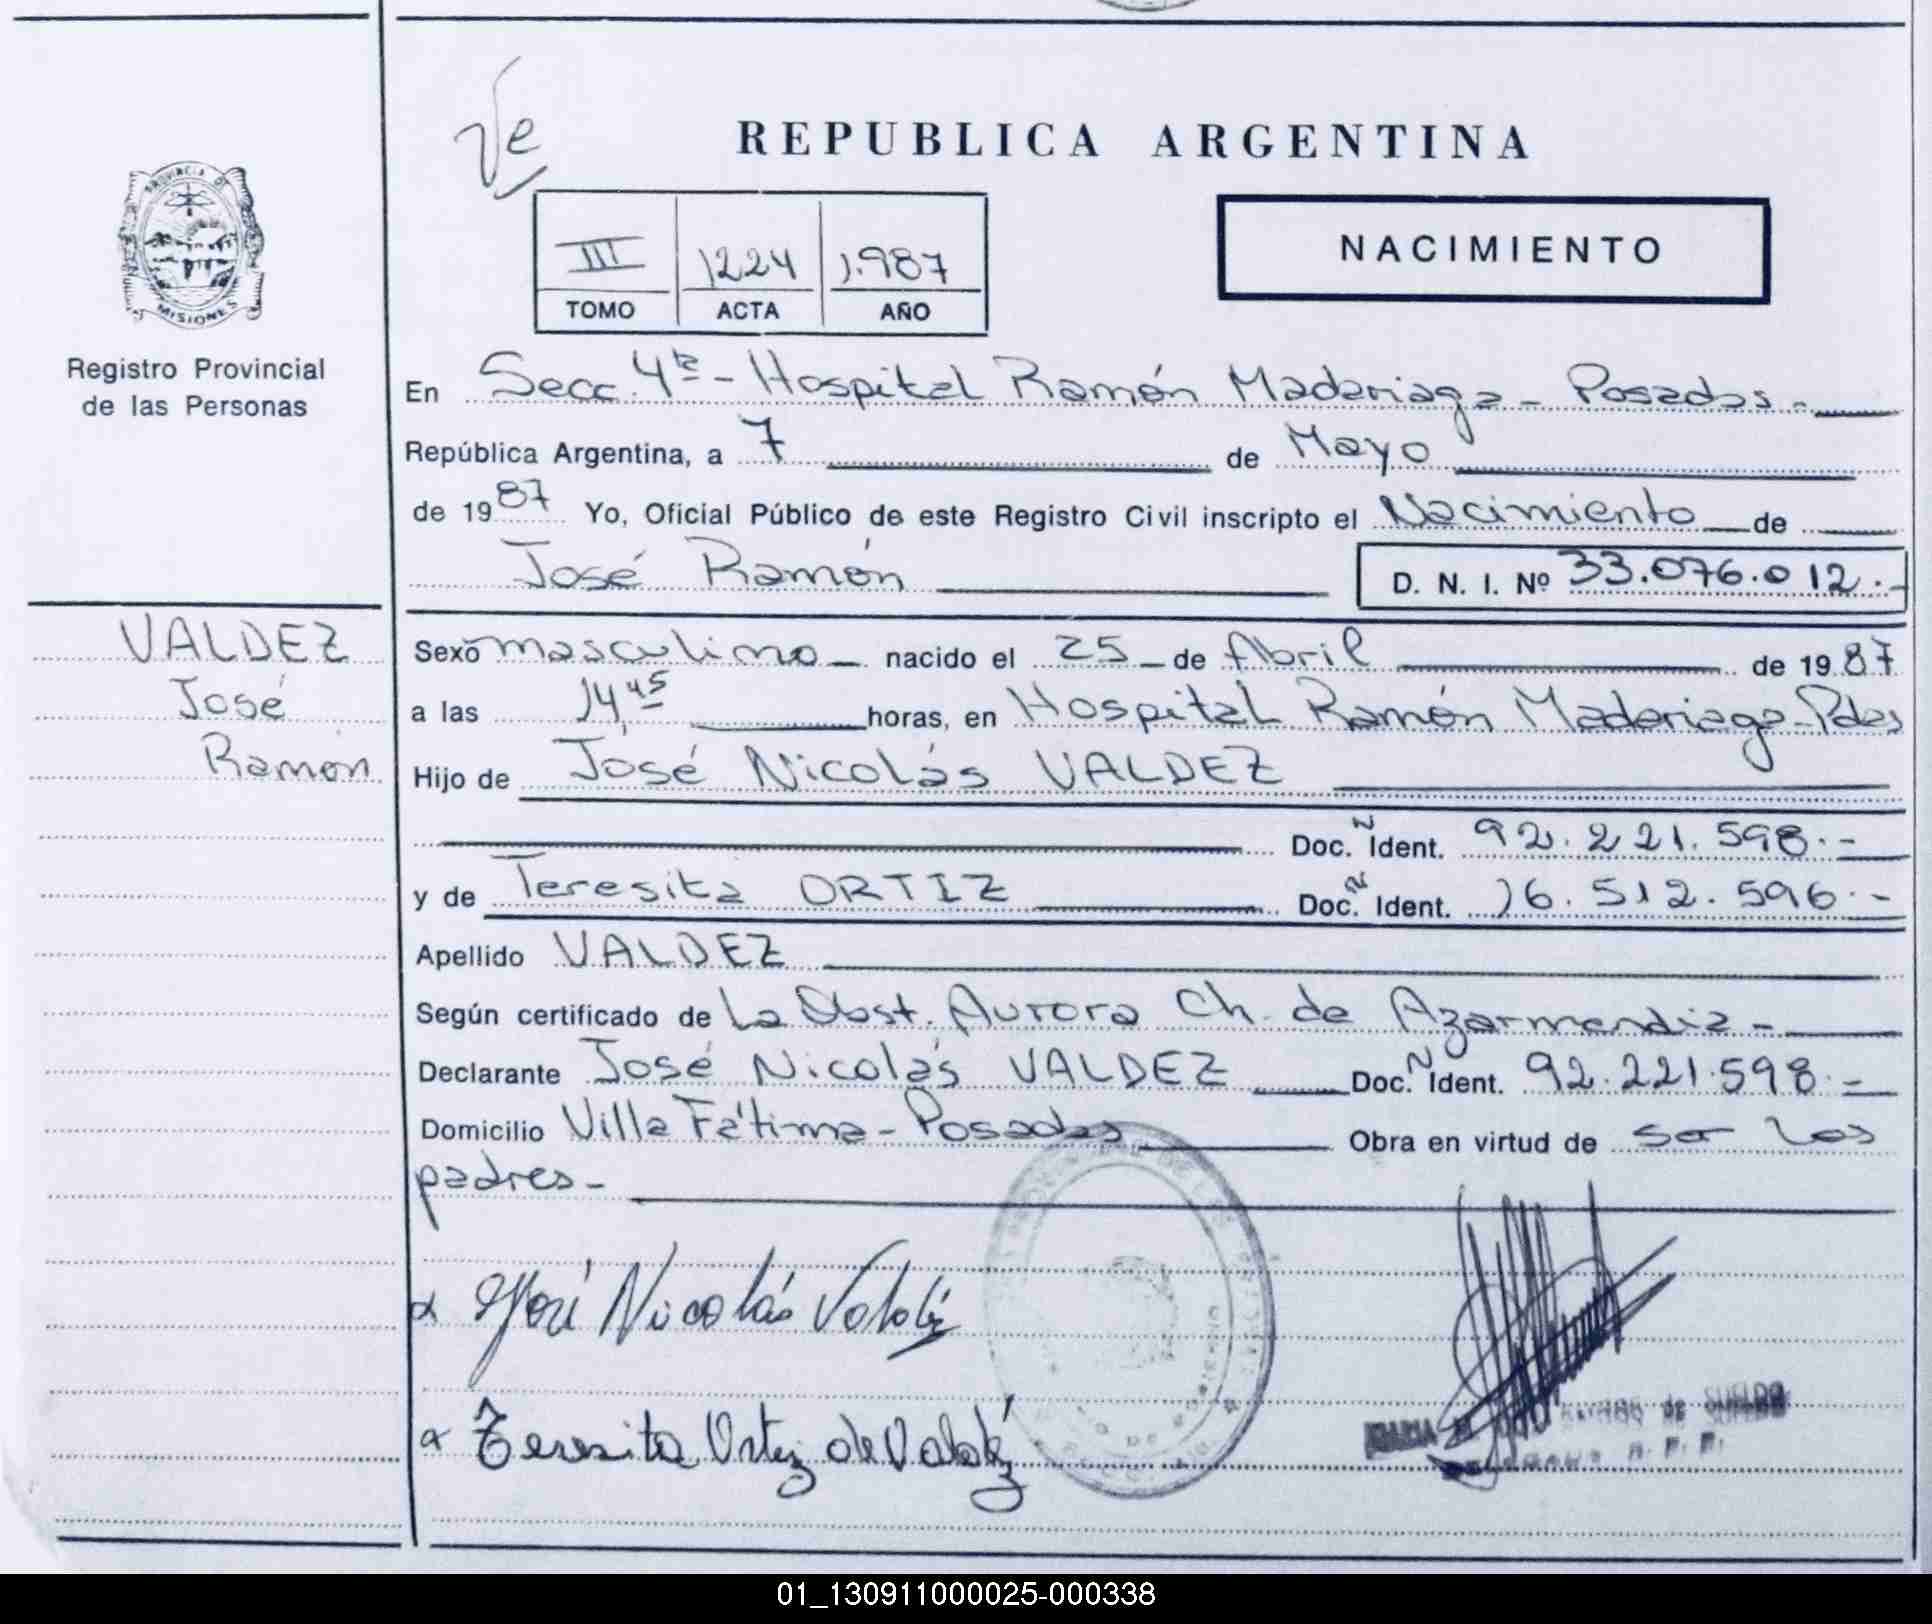 Ve
REPUBLICA ARGENTINA
NACIMIENTO
III 1224 1.987
TOMO ACTA AÑO
PROVINCIA DE
MISIONES
Registro Provincial
de las Personas
En Secc. 4ta - Hospital Ramón Madariaga - Posadas -
República Argentina, a 7 de Mayo
de 1987 Yo, Oficial Público de este Registro Civil inscripto el Nacimiento de
José Ramón D. N. I. Nº 33.076.012.-
VALDEZ
José
Ramón
Sexo masculino nacido el 25 de Abril de 1987
a las 14,45 horas, en Hospital Ramón Madariaga - Pdas
Hijo de José Nicolás VALDEZ
Doc. N Ident. 92.221.598.-
y de Teresita ORTIZ Doc. N Ident. 16.512.596.-
Apellido VALDEZ
Según certificado de La Obst. Aurora Ch. de Azarmendia -
Declarante José Nicolás VALDEZ Doc. N Ident. 92.221.598.-
Domicilio Villa Fátima - Posadas Obra en virtud de ser los
padres -
José Nicolás Valdéz
Teresita Ortiz de Valdéz
01_130911000025-000338